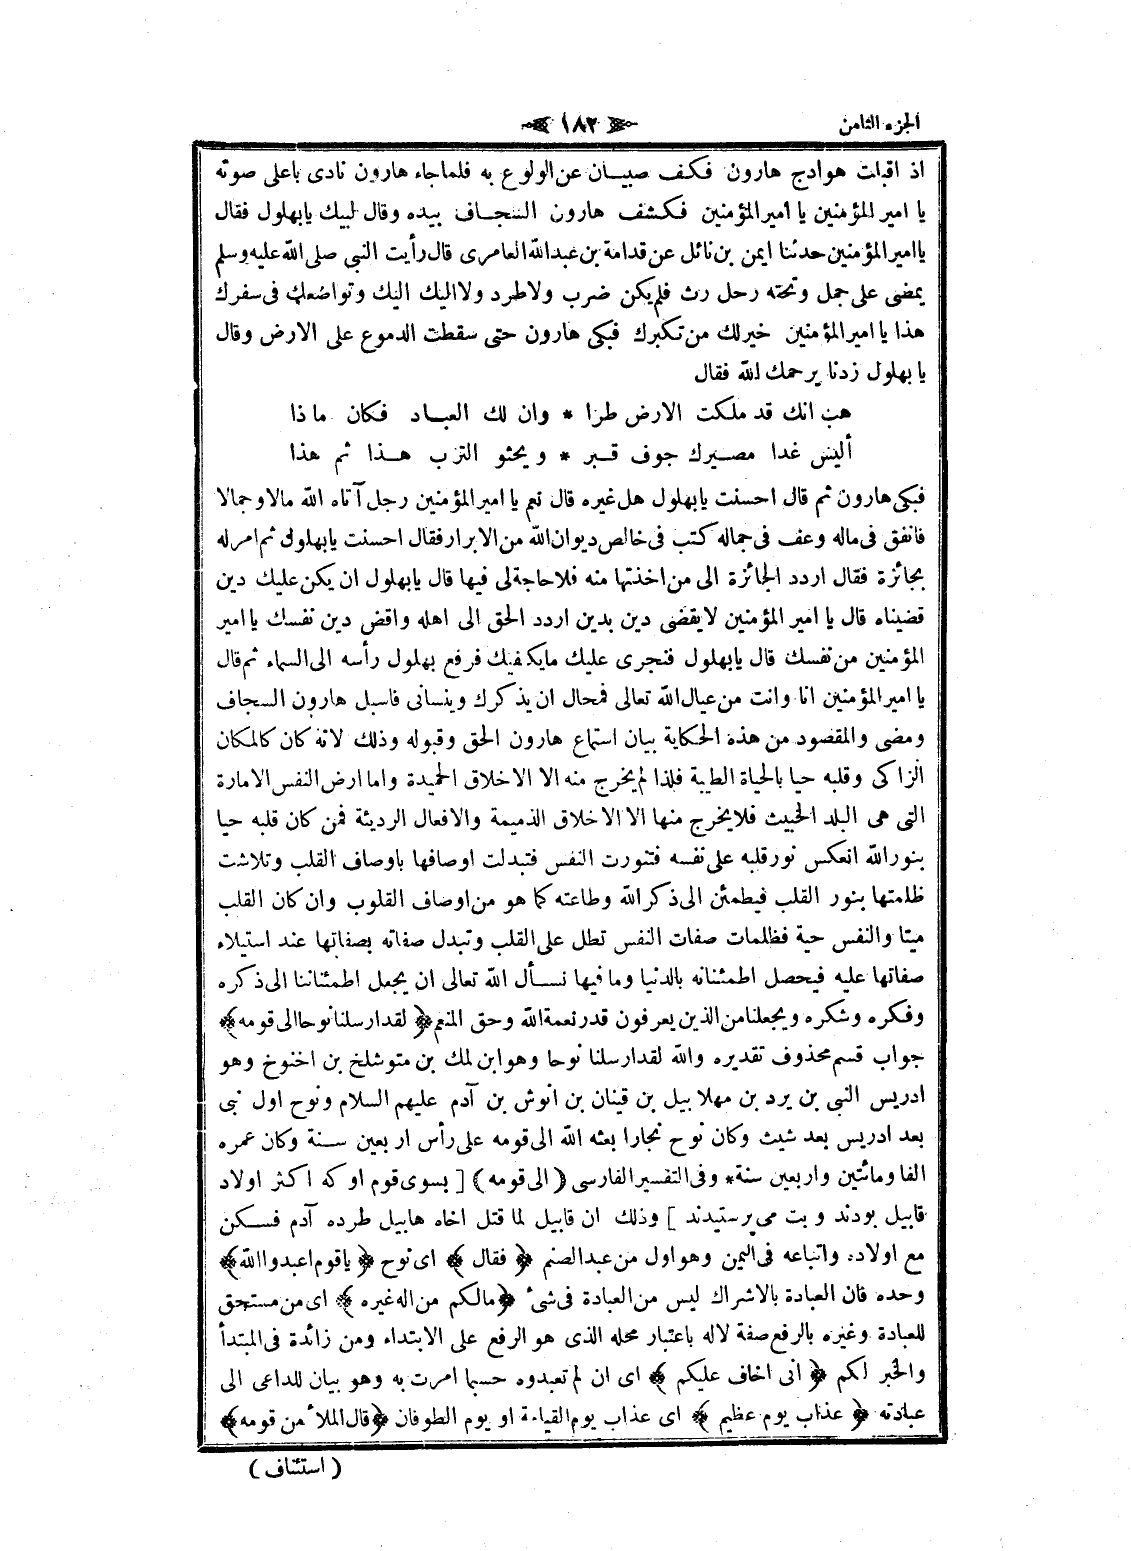 الجزء الثامن
١٨٢
اذ اقبات هوادج هارون فكف صبيان عن الولوع به فلما جاء هارون نادى باعلى صوته
يا امير المؤمنين يا امير المؤمنين فكشف هارون السجاف بيده وقال لبيك يا بهلول فقال
يا امير المؤمنين حدثنا ايمن بن نائل عن قدامة بن عبد الله العامرى قال رأيت النبى صلى الله عليه وسلم
يمضى على جمل وتحته رحل رث فلم يكن ضرب ولا طرد ولا اليك اليك وتواضعك فى سفرك
هذا يا امير المؤمنين خير لك من تكبرك فبكى هارون حتى سقطت الدموع على الارض وقال
يا بهلول زدنا يرحمك الله فقال
هب انك قد ملكت الارض طرا * وان لك العباد فكان ما ذا
أليس غدا مصيرك جوف قبر * ويحثو الترب هذا ثم هذا
فبكى هارون ثم قال احسنت يا بهلول هل غيره قال نعم يا امير المؤمنين رجل آتاه الله مالا وجمالا
فانفق فى ماله وعف فى جماله كتب فى خالص ديوان الله من الابرار فقال احسنت يا بهلول ثم امر له
بجائزة فقال اردد الجائزة الى من اخذتها منه فلا حاجة لى فيها قال يا بهلول ان يكن عليك دين
قضيناه قال يا امير المؤمنين لا يقضى دين بدين اردد الحق الى اهله واقض دين نفسك يا امير
المؤمنين من نفسك قال يا بهلول فنجرى عليك ما يكفيك فرفع بهلول رأسه الى السماء ثم قال
يا امير المؤمنين انا وانت من عيال الله تعالى فمحال ان يذكرك وينسانى فاسبل هارون السجاف
ومضى والمقصود من هذه الحكاية بيان استماع هارون الحق وقبوله وذلك لانه كان كالمكان
الزاكى وقلبه حيا بالحياة الطيبة فلذا لم يخرج منه الا الاخلاق الحميدة واما ارض النفس الامارة
التى هى البلد الخبيث فلا يخرج منها الا الاخلاق الذميمة والافعال الرديئة فمن كان قلبه حيا
بنور الله انعكس نور قلبه على نفسه فتنورت النفس فتبدلت اوصافها باوصاف القلب وتلاشت
ظلمتها بنور القلب فيطمئن الى ذكر الله وطاعته كما هو من اوصاف القلوب وان كان القلب
ميتا والنفس حية فظلمات صفات النفس تطل على القلب وتبدل صفاته بصفاتها عند استيلاء
صفاتها عليه فيحصل اطمئنانه بالدنيا وما فيها نسأل الله تعالى ان يجعل اطمئناننا الى ذكره
وفكره وشكره ويجعلنا من الذين يعرفون قدر نعمة الله وحق المنعم ﴿ لقد ارسلنا نوحا الى قومه ﴾
جواب قسم محذوف تقديره والله لقد ارسلنا نوحا وهو ابن لمك بن متوشلخ بن اخنوخ وهو
ادريس النبى بن يرد بن مهلا بيل بن قينان بن انوش بن آدم عليهم السلام ونوح اول نبى
بعد ادريس بعد شيث وكان نوح نجارا بعثه الله الى قومه على رأس اربعين سنة وكان عمره
الفا ومائتين واربعين سنة* وفى التفسير الفارسى ( الى قومه ) [ بسوى قوم او كه اكثر اولاد
قابيل بودند و بت مى پرستيدند ] وذلك ان قابيل لما قتل اخاه هابيل طرده آدم فسكن
مع اولاده واتباعه فى اليمن وهو اول من عبد الصنم ﴿ فقال ﴾ اى نوح ﴿ يا قوم اعبدوا الله ﴾
وحده فان العبادة بالاشراك ليس من العبادة فى شئ ﴿ مالكم من اله غيره ﴾ اى من مستحق
للعبادة وغيره بالرفع صفة لاله باعتبار محله الذى هو الرفع على الابتداء ومن زائدة فى المبتدأ
والخبر لكم ﴿ انى اخاف عليكم ﴾ اى ان لم تعبدوه حسبما امرت به وهو بيان للداعى الى
عبادته ﴿ عذاب يوم عظيم ﴾ اى عذاب يوم القيامة او يوم الطوفان ﴿ قال الملأ من قومه ﴾
( استئناف )